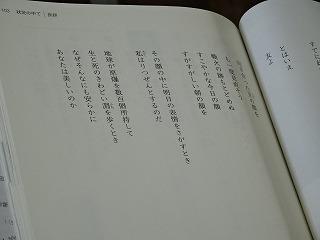 とはいえ
友よ
向き合った互の顔を
も一度見直そう
戦火の跡もとどめぬ
すこやかな今日の顔
すがすがしい朝の顔を
その顔の中に明日の表情をさがすとき
私はりつぜんとするのだ
地球が原爆を数百個所持して
生と死のきわどい淵を歩くとき
なぜそんなにも安らかに
あなたは美しいのか
状況の中で